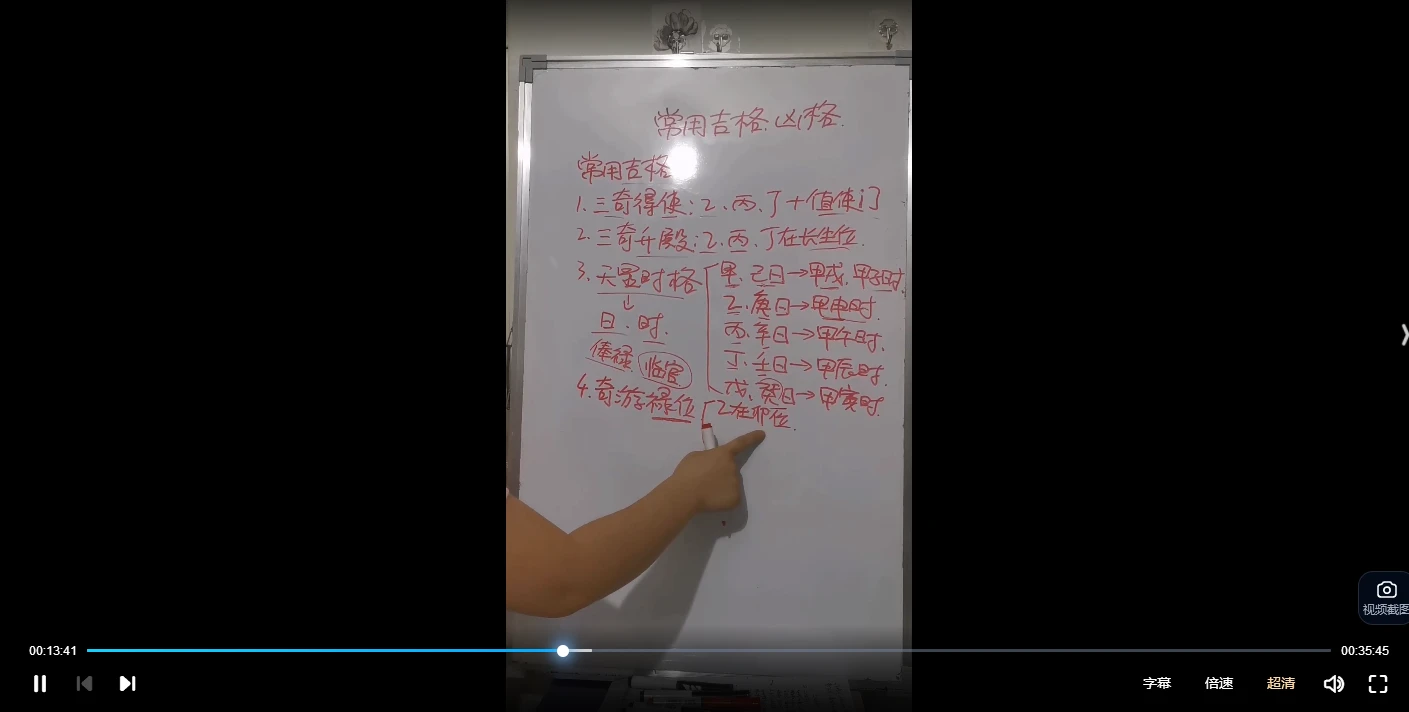 常用吉格.凶格.
常用吉格
1.三奇得使:乙、丙、丁+值使门
2.三奇升殿:乙、丙、丁在长生位.
3.天显时格
甲、己日→甲戌、甲子时.
乙、庚日→甲申时.
丙、辛日→甲午时.
丁、壬日→甲辰时.
戊、癸日→甲寅时.
↓
日.时.
俸禄.临官
4.奇游禄位
乙在卯位.
视频截图
00:13:41
00:35:45
字幕
倍速
超清